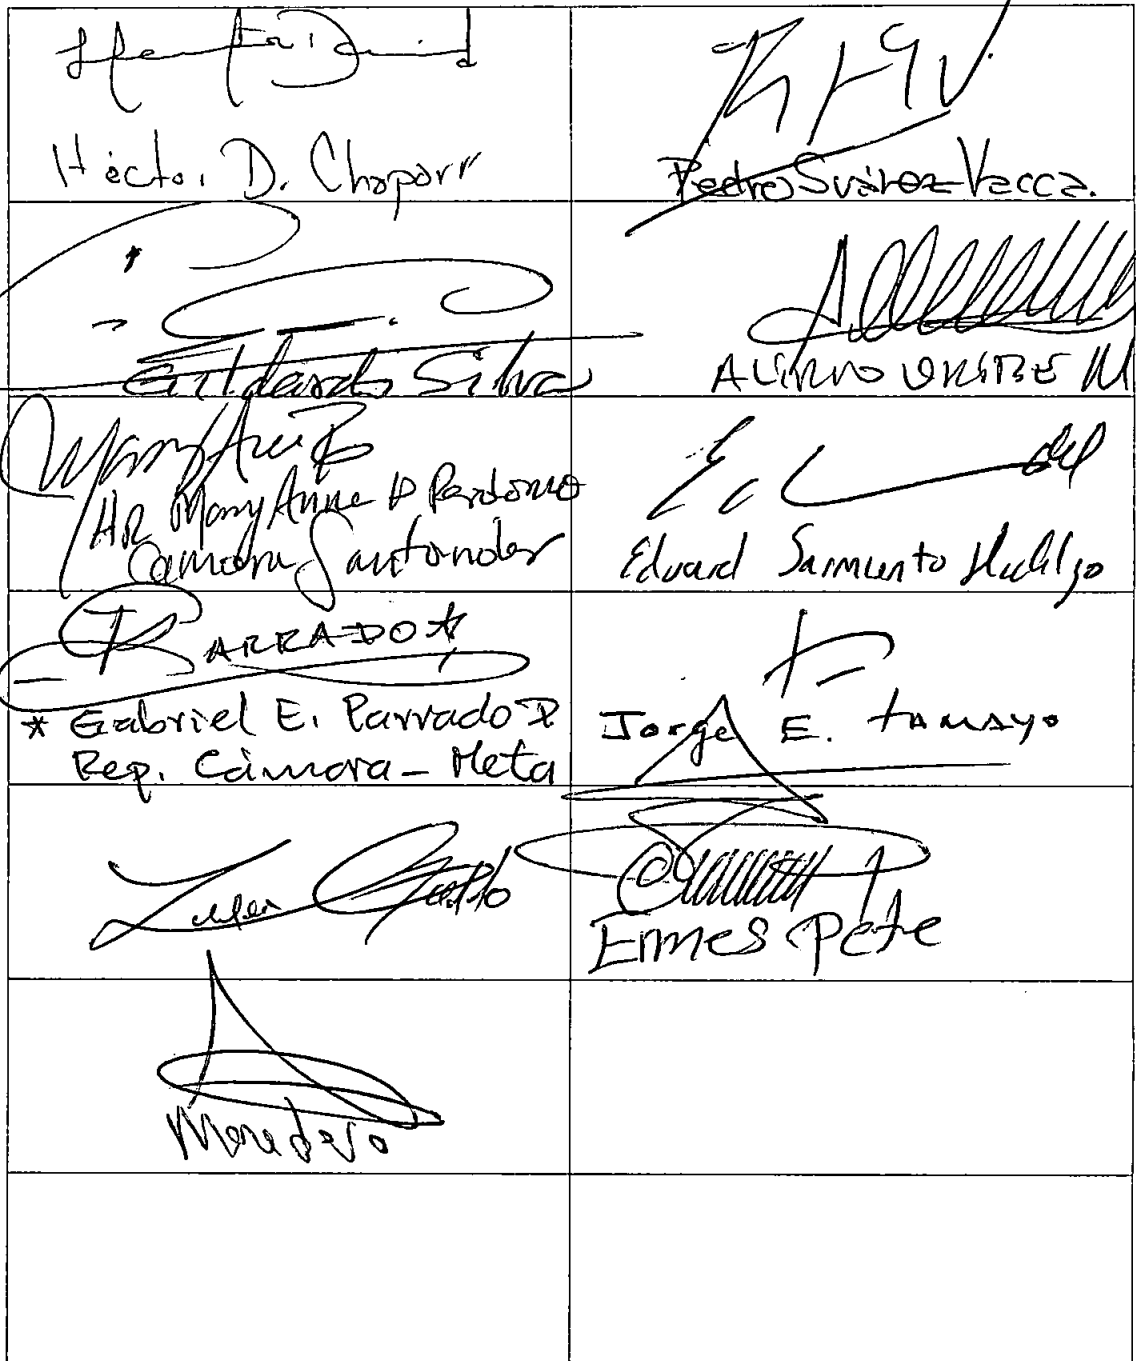 Héctor D. Chaparr
Pedro Suárez Vacca.
Gildardo Silva
ALIRIO URIBE M
HR Mary Anne A Perdomo
Camara Santander
Eduard Sarmiento Hidalgo
PARRADO
* Gabriel E. Parrado D
Rep. Cámara - Meta
Jorge E. TAMAYO
Ermes Pete